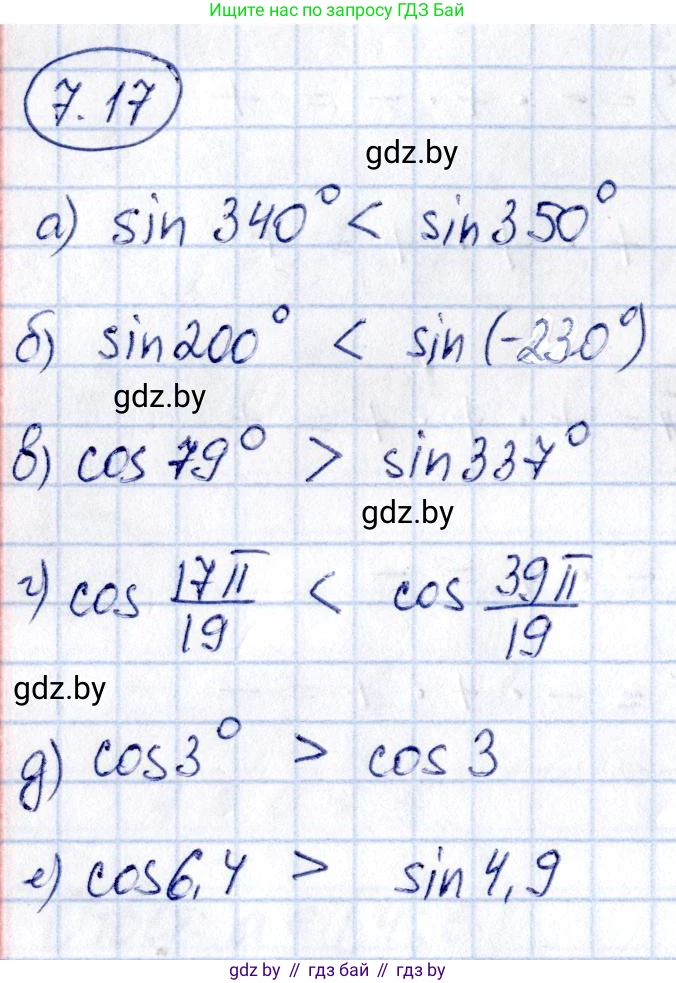 Ищите нас по запросу ГДЗ Бай
7.17
gdz.by
а) sin 340° < sin 350°
б) sin 200° < sin (-230°)
gdz.by
в) cos 79° > sin 337°
gdz.by
г) cos 17π/19 < cos 39π/19
gdz.by
д) cos 3° > cos 3
е) cos 6,4 > sin 4,9
gdz by // гдз бай // гдз by